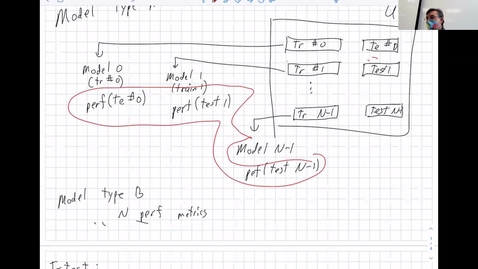 Model Type A
U
Tr #0 Te #0
Model 0
(tr #0)
Model 1
(train 1)
Tr #1 Test 1
perf(te #0) perf(test 1)
Tr N-1 Test N-1
Model N-1
perf(test N-1)
Model type B
N perf metrics